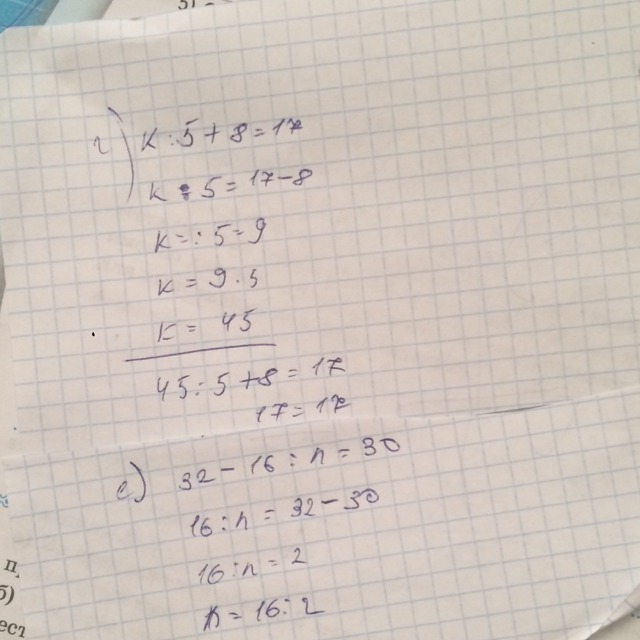 г) к : 5 + 8 = 17
к : 5 = 17 - 8
к = : 5 = 9
к = 9 · 5
к = 45
45 : 5 + 8 = 17
17 = 17
е) 32 - 16 : n = 30
16 : n = 32 - 30
16 : n = 2
n = 16 : 2
п,
б)